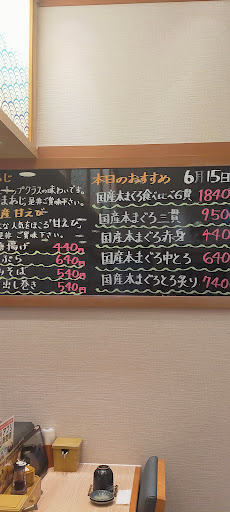 本日のおすすめ 6月15日
国産本まぐろ食べくらべ6貫 1840
国産本まぐろ三貫 950
国産本まぐろ赤身 440
国産本まぐろ中とろ 640
国産本まぐろとろ炙り 740
クラスの味わいです。
まあじ 是非ご賞味下さい。
産 甘えび
な人気をほこる"甘えび"
是非 ご賞味下さい。
揚げ 440円
ぷら 640円
そば 540円
出し巻き 540円